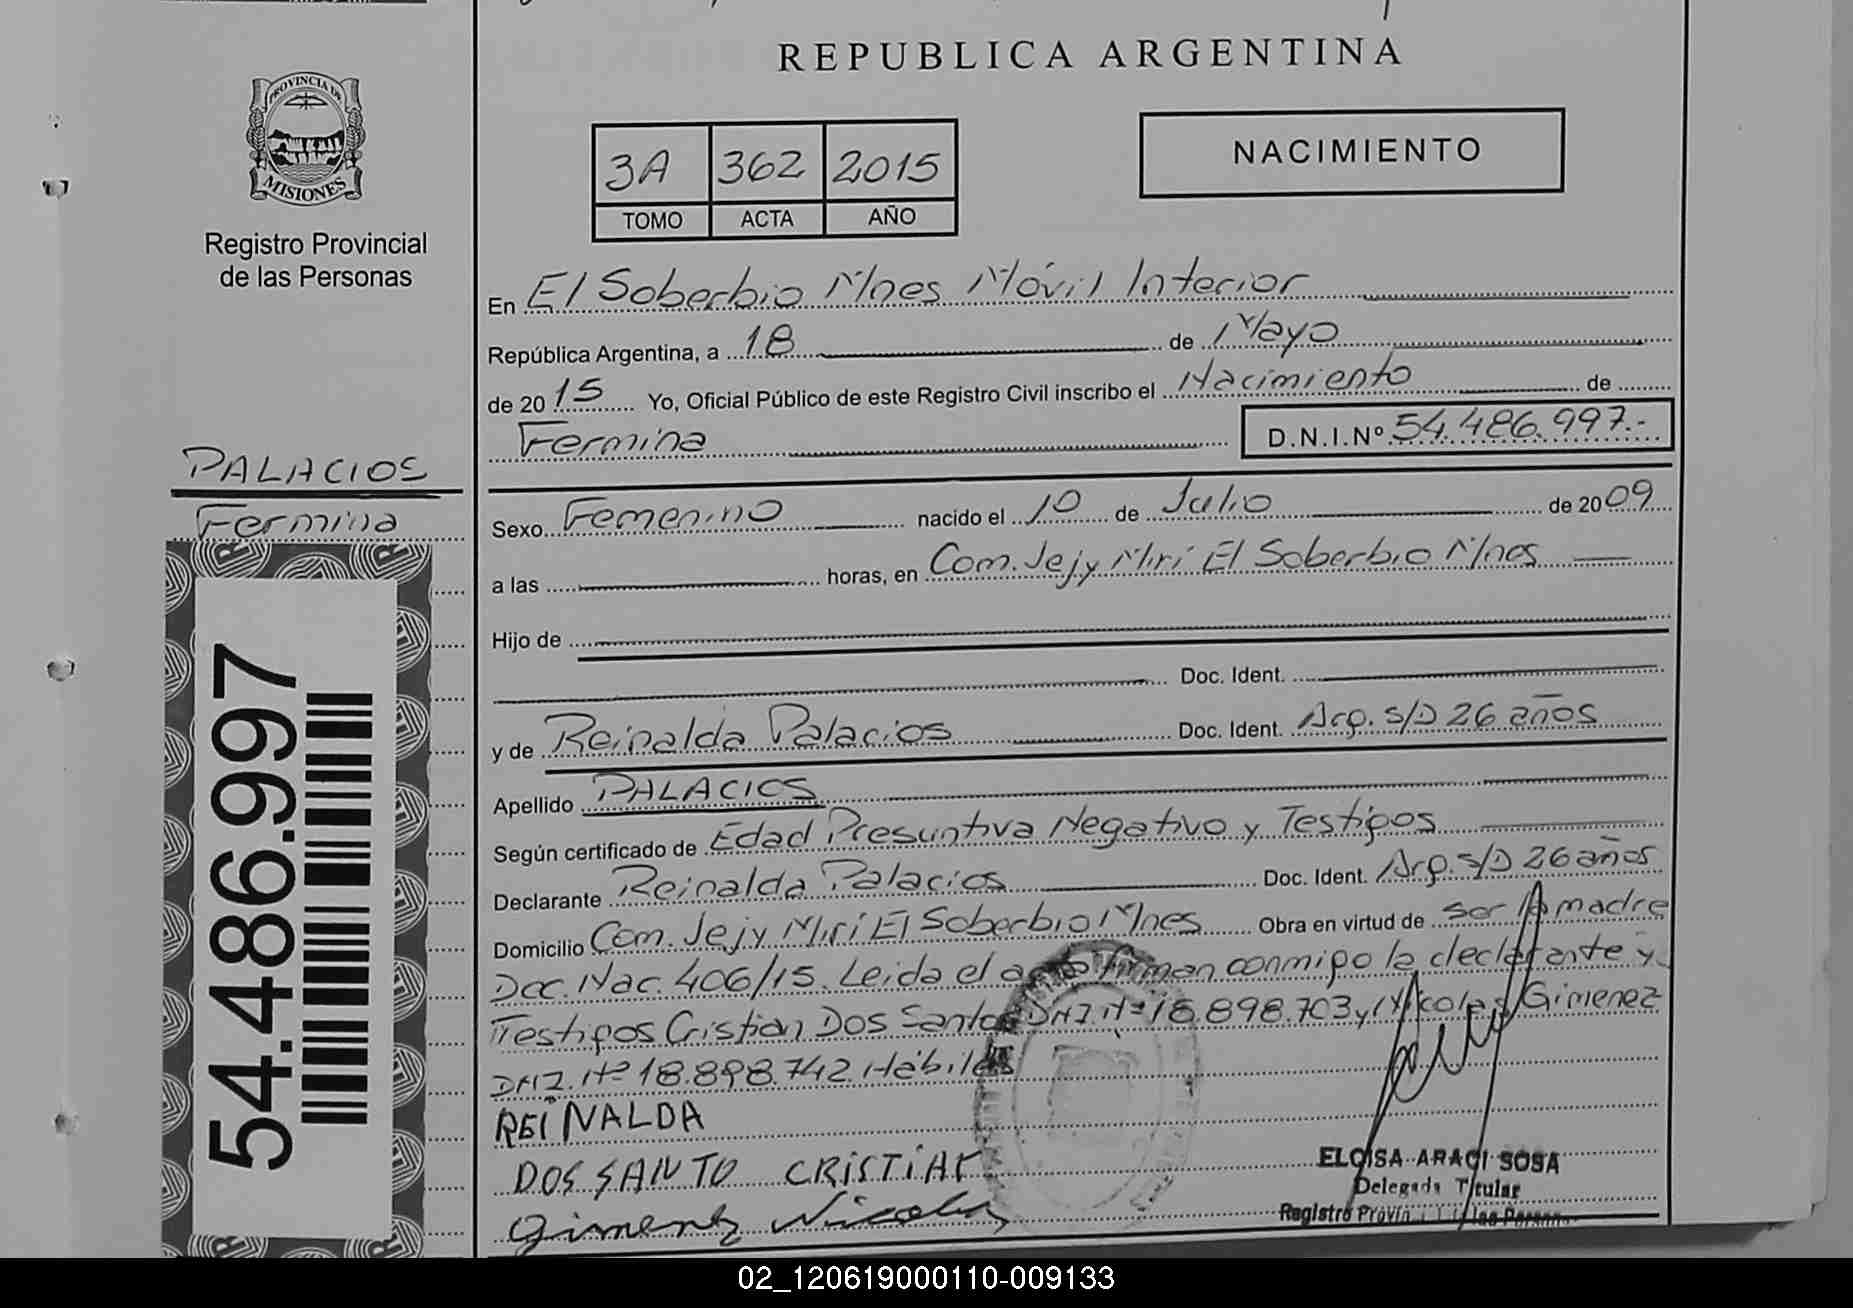 REPUBLICA ARGENTINA
PROVINCIA DE
MISIONES
Registro Provincial
de las Personas
3A 362 2015
TOMO ACTA AÑO
NACIMIENTO
En El Soberbio Mnes Móvil Interior
República Argentina, a 18 de Mayo
de 2015 Yo, Oficial Público de este Registro Civil inscribo el Nacimiento de
Fermina D.N.I.Nº 54.486.997.-
PALACIOS
Fermina
54.486.997
Sexo Femenino nacido el 10 de Julio de 2009
a las horas, en Com. Jejy Miri El Soberbio Mnes
Hijo de
Doc. Ident.
y de Reinalda Palacios Doc. Ident. Arg. S/D 26 años
Apellido PALACIOS
Según certificado de Edad Presuntiva Negativo y Testigos
Declarante Reinalda Palacios Doc. Ident. Arg. S/D 26 años
Domicilio Com. Jejy Miri El Soberbio Mnes Obra en virtud de ser la madre
Doc. Nac. 406/15. Leida el acta firman conmigo la declarante y
Testigos Cristian Dos Santos DNI. Nº 18.898.703 y Nicolas Gimenez
DNI. Nº 18.898.742. Hábiles
REINALDA
DOS SANTO CRISTIAN
Gimenez Nicolas
ELOISA ARACI SOSA
Delegada Titular
Registro Provin las Person
02_120619000110-009133